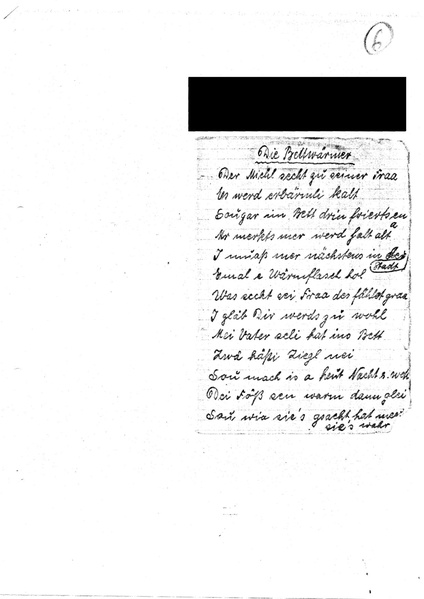 6
Die Bettwärmer
Der Michl secht zu seiner Fraa
Es werd erbärmli kalt
Sougar im Bett drin frierts en
Mr merkts mer werd halt alt
I muaß mer nächstens in
Stadt
Emal e Wärmflasch hol
Was secht sei Fraa des fählst graa
I gläb Dir werds zu wohl
Mei Vater seli hat ins Bett
Zwä häßi Ziegl nei
Sou mach is a heut Nacht
Dei Föß sen warm dann glei
Sou wia sie's gsacht hat
sie's wahr